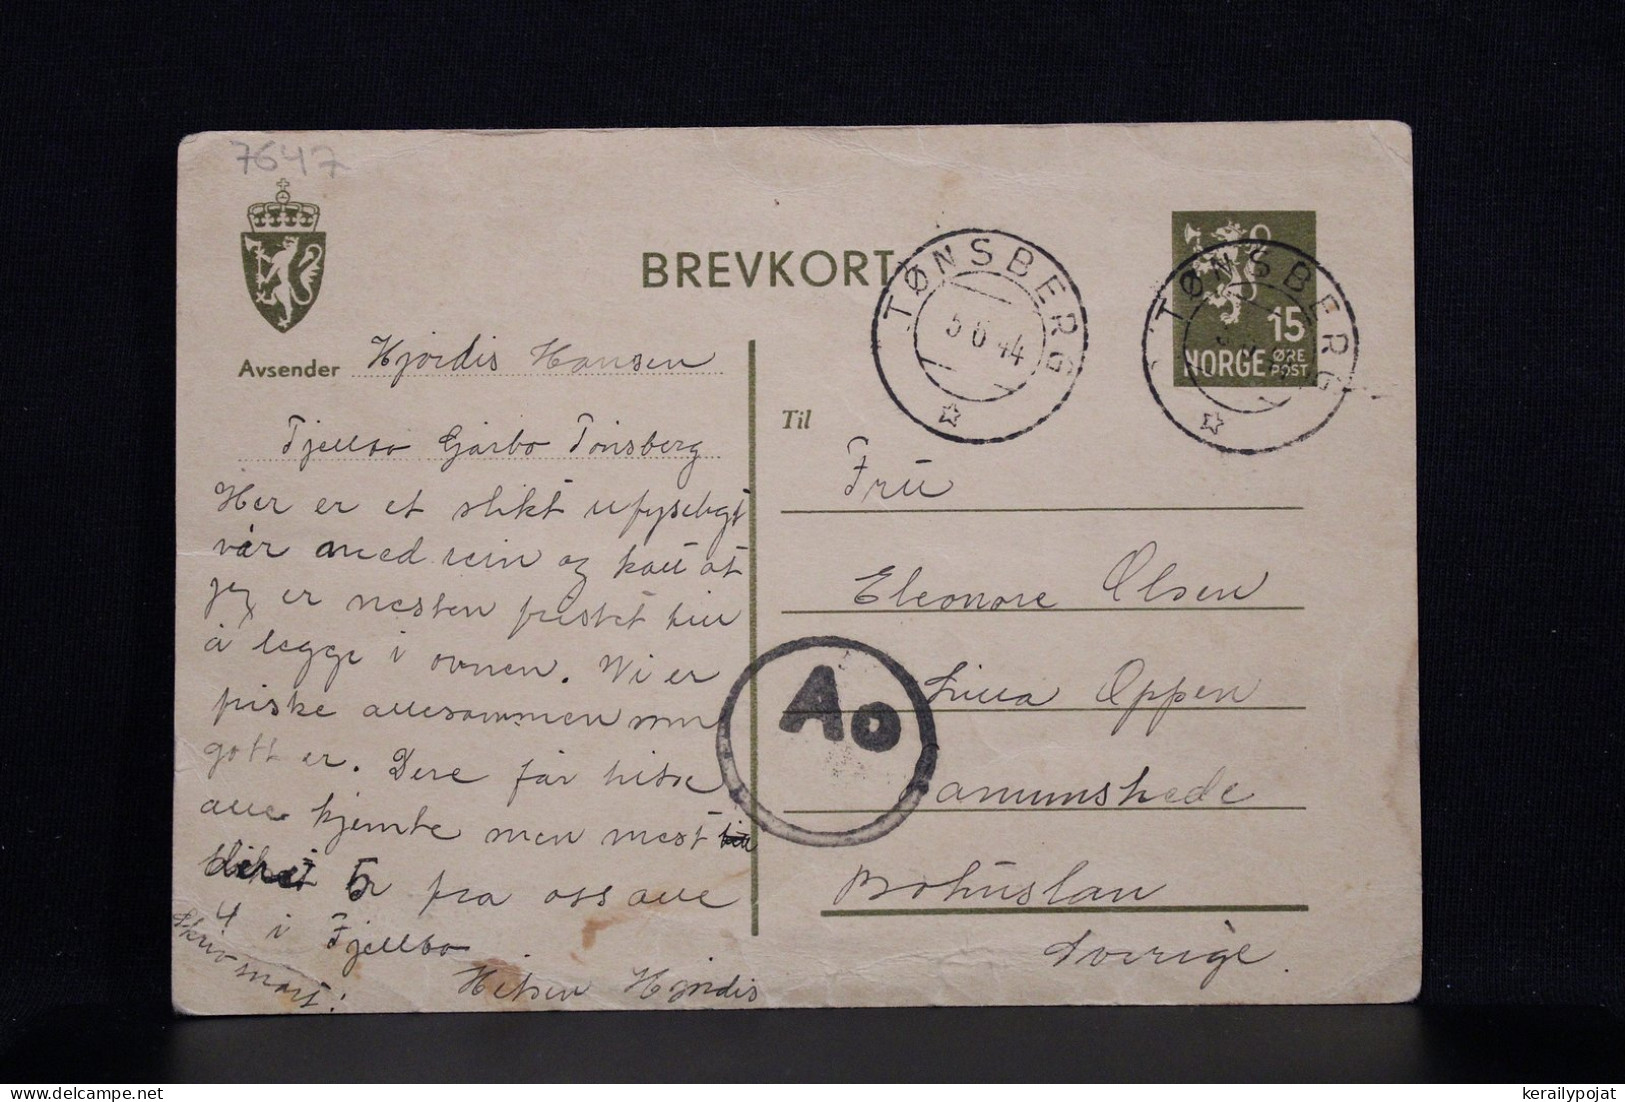 7647
BREVKORT
TØNSBERG
5 6 44
TØNSBERG
15
NORGE ØRE POST
Avsender Hjordis Hansen
Fjellbo Gjarbo Tønsberg
Her er et slikt ufyseligt
vær med vin og kall at
jeg er nesten fristet till
å legge i ovnen. Vi er
friske allesammen
gott er. Dere får hilse
alle kjente men mest
5 fra oss alle
4 i Fjellbo
Hilsen Hjørdis
Skriv snart!
Til
Fru
Eleonore Olsen
Lilla Oppen
Tanumshede
Bohuslan
Sverige.
Ao
kerailypojat @ delcampe.net